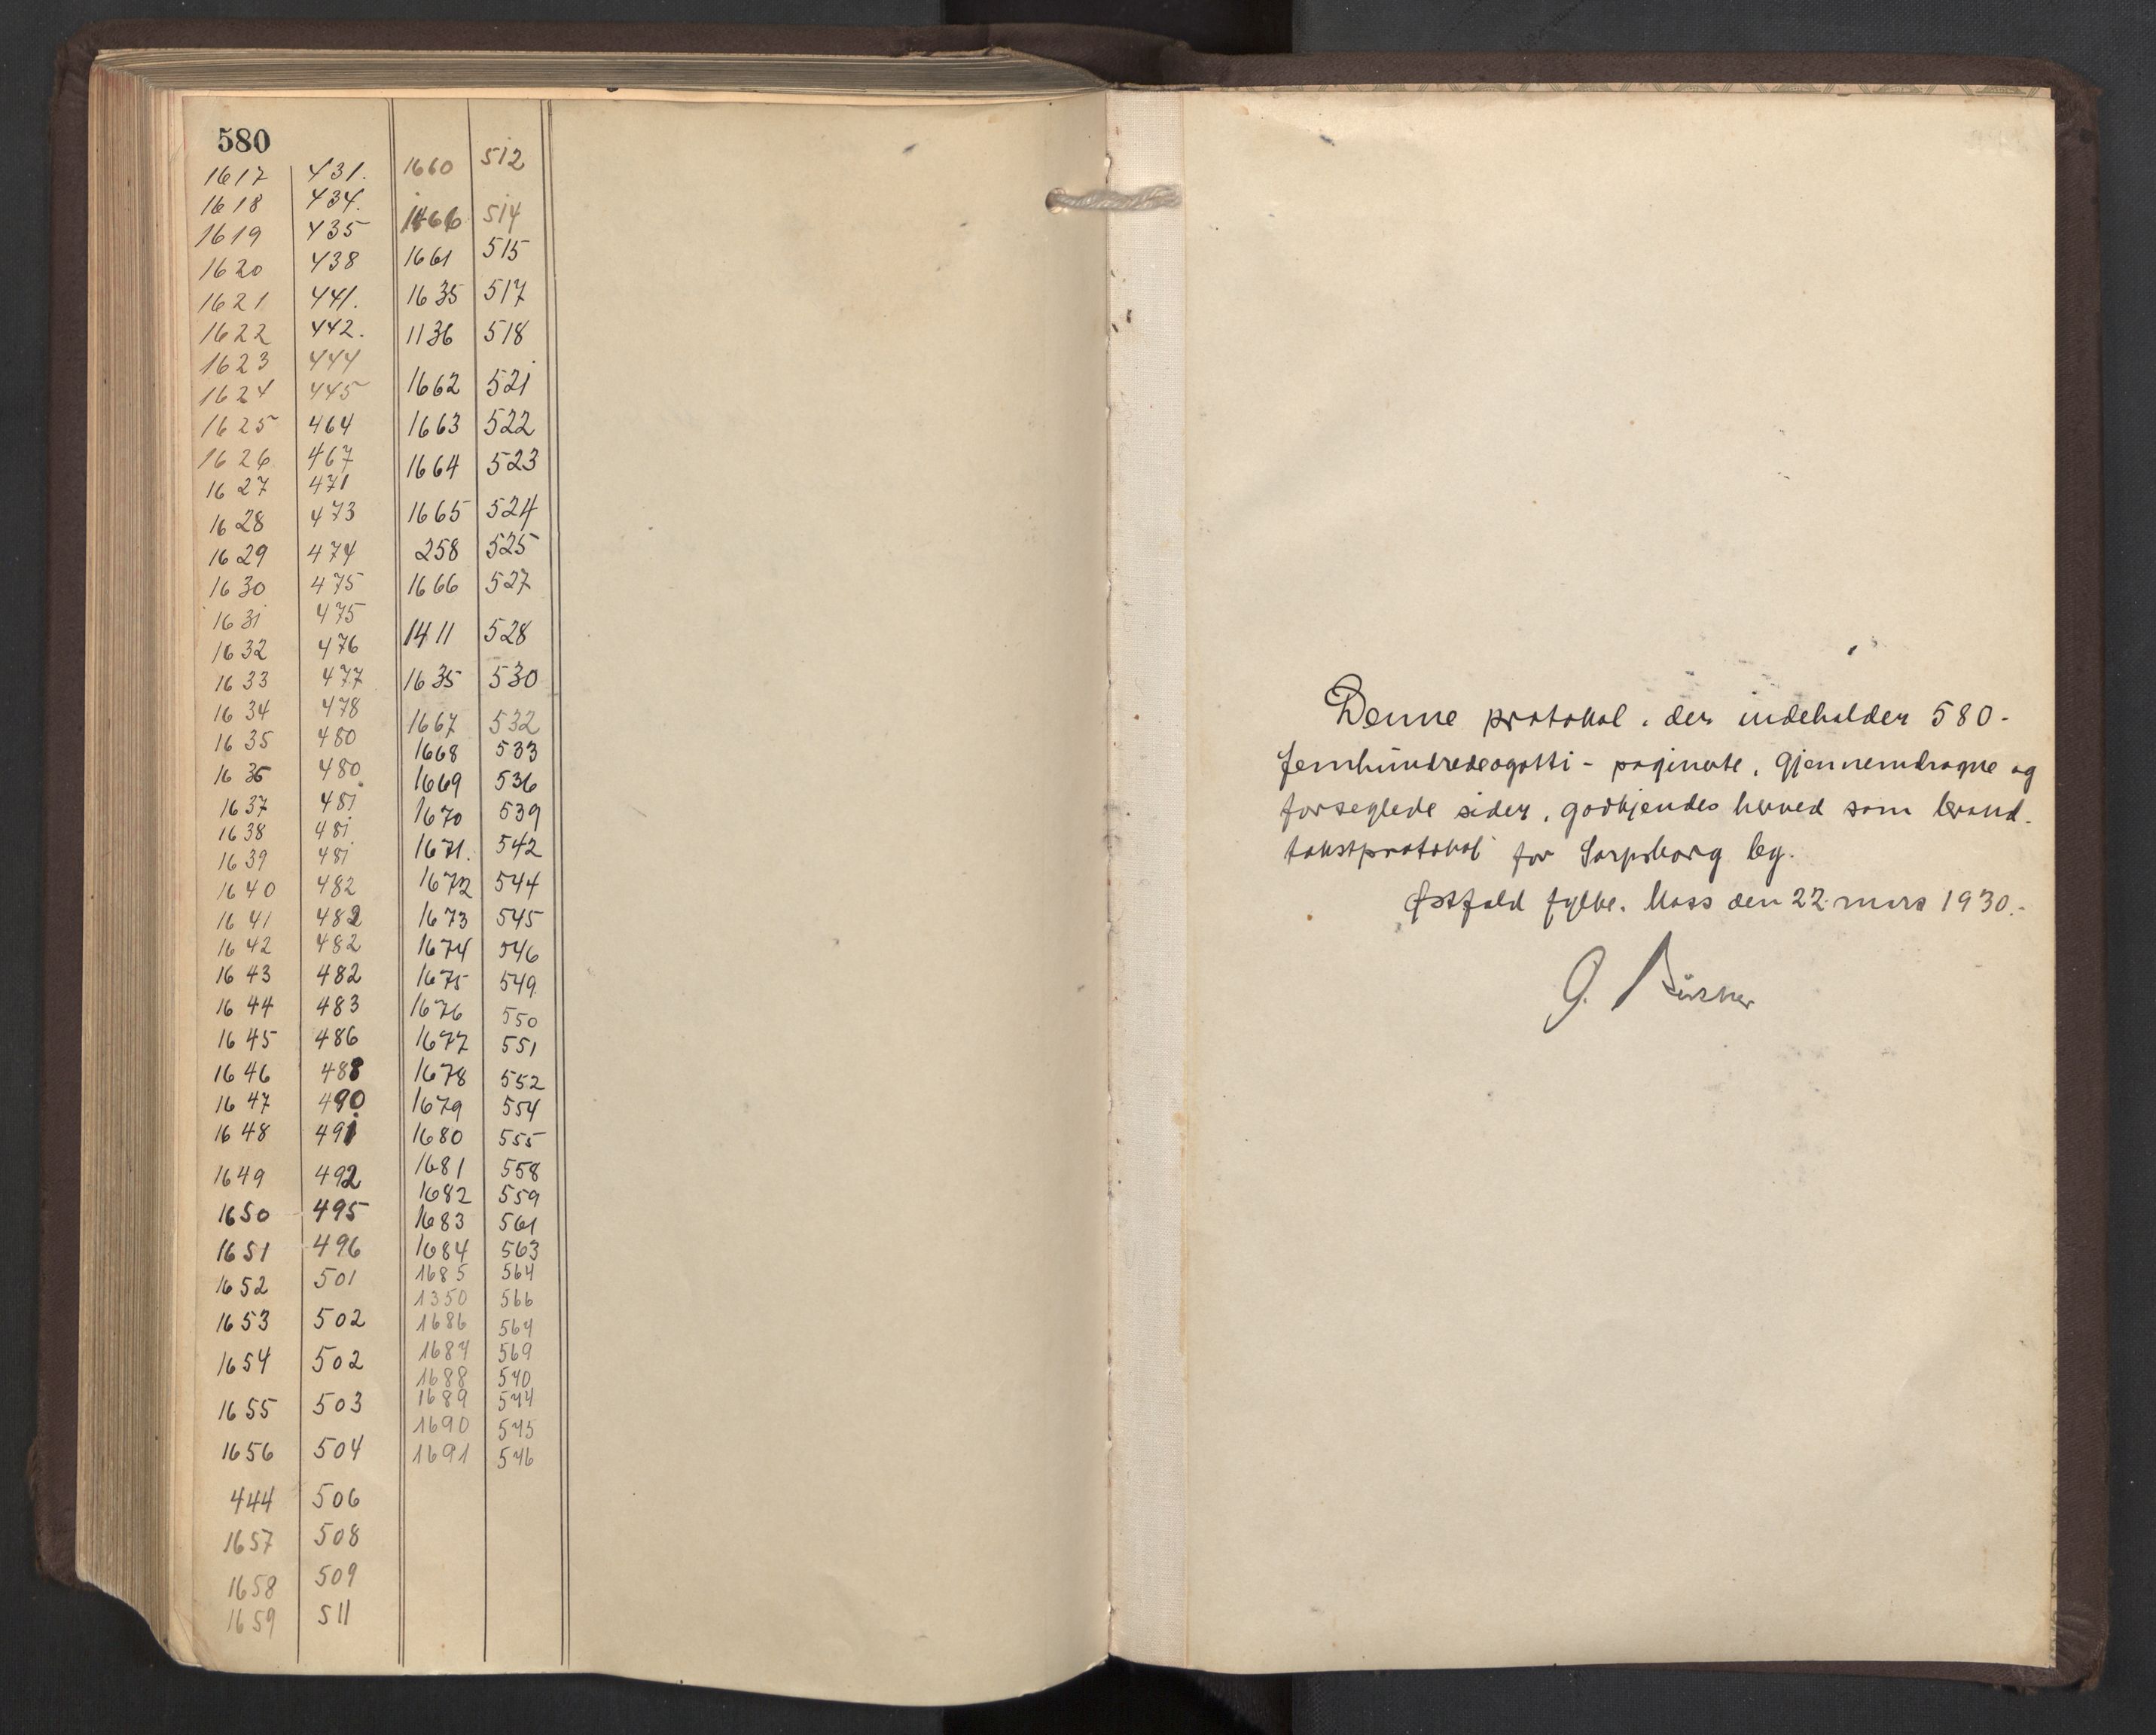 580
1617 431.
1618 434.
1619 435
1620 438
1621 441.
1622 442.
1623 444
1624 445
1625 464
1626 467
1627 471
1628 473
1629 474
1630 475
1631 475
1632 476
1633 477
1634 478
1635 480
1636 480
1637 481
1638 481
1639 481
1640 482
1641 482
1642 482
1643 482
1644 483
1645 486
1646 488
1647 490
1648 491
1649 492
1650 495
1651 496
1652 501
1653 502
1654 502
1655 503
1656 504
444 506
1657 508
1658 509
1659 511
1660 512
1466 514
1661 515
1635 517
1136 518
1662 521
1663 522
1664 523
1665 524
258 525
1666 527
1411 528
1635 530
1667 532
1668 533
1669 536
1670 539
1671. 542
1672 544
1673 545
1674 546
1675 549
1676 550
1677 551
1678 552
1679 554
1680 555
1681 558
1682 559
1683 561
1684 563
1685 564
1350 566
1686 567
1687 569
1688 570
1689 574
1690 575
1691 576
Denne protokol, der indeholder 580 -
femhundredeogotti - paginerte, gjennemdragne og
forseglede sider, godkjendes herved som brand-
takstprotokol for Sarpsborg by.
Østfold fylke, Moss den 22 mars 1930.-
G.